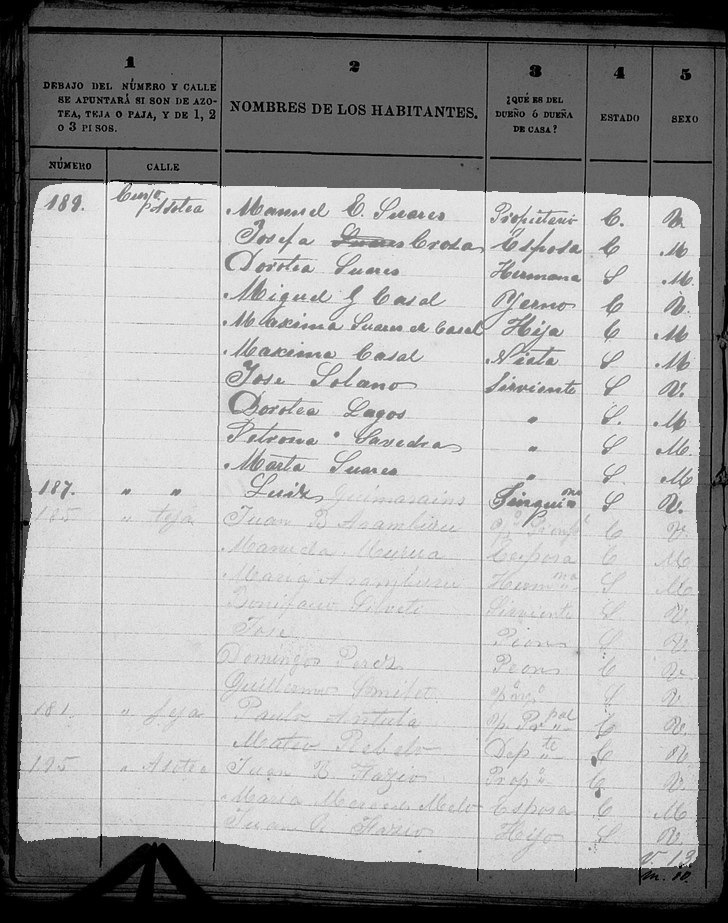 1 2 3 4 5
DEBAJO DEL NÚMERO Y CALLE
SE APUNTARÁ SI SON DE AZO-
TEA, TEJA O PAJA, Y DE 1, 2
O 3 PISOS.
NOMBRES DE LOS HABITANTES.
¿QUÉ ES DEL
DUEÑO Ó DUEÑA
DE CASA?
ESTADO
SEXO
NÚMERO CALLE
189. Azotea Manuel E. Suares Propietario C. V.
Josefa Crosa Esposa C M
Dorotea Suares Hermana S M.
Miguel G Casal Yerno C V.
Maxima Suares de Casal Hija C M
Maxima Casal Nieta S M
Jose Solano Sirviente S V.
Dorotea Lagos " S. M
Petrona Savedra " S M.
Marta Suares " S. M
187. " " Luis Guimarains S V.
185 " teja Juan B Aramburu C V.
Manuela Murua Esposa C M
Maria Aramburu S M
Bonifacio Sirviente S V.
Jose Peon S V
Domingos Perez Peon C V.
Guillermo S V
181 " teja Paulo C V.
Mateo Rebelo C V.
195 " Azotea Juan B. Fazio Prop C V.
Maria Melo Esposa C M
Juan Fazio Hijo S V.
V. 13
M. 10.